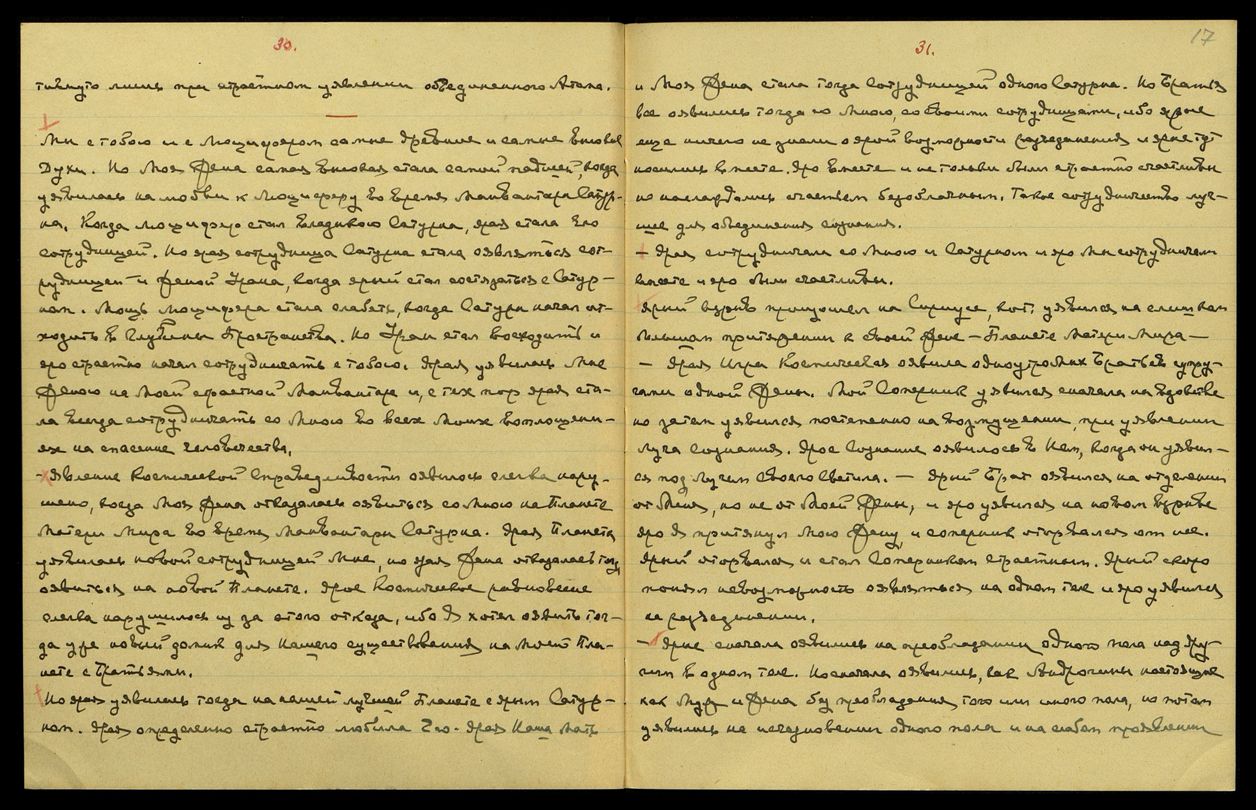 30.
тигнуто лишь при страстном уявлении объединенного Атома.
Мы с тобою и с Люцифером самые древние и самые высокие
Духи. Но Моя Фена самая высокая стала самой падшей, когда
уявилась на любви к Люциферу во время Манвантары Сатур-
на. Когда Люцифер стал Владыкою Сатурна, ярая стала Его
сотрудницей. Но ярая сотрудница Сатурна стала оявляться сот-
рудницей – и Феной Урана, когда ярый стал состязаться с Сатур-
ном. Мощь Люцифера стала слабеть, когда Сатурн начал от-
ходить в глубины Пространства. Но Уран стал восходить и
яро страстно начал сотрудничать с тобою. Ярая уявилась Мне
Феною на Моей страстной Манвантаре и, с тех пор ярая ста-
ла всегда сотрудничать со Мною во всех Моих воплощени-
ях на спасение человечества.
– Явление Космической Справедливости оявилось слегка нару-
шено, когда Моя Фена отказалась оявиться со Мною на Планете
Матери Мира во время Манвантары Сатурна. Ярая Планета
уявилась новой сотрудницей Мне, но ярая Фена отказалась тогда
оявиться на новой Планете. Ярое Космическое равновесие
слегка нарушилось из за этого отказа, ибо Я хотел оявить тог-
да уже новый домик для нашего существования на Моей Пла-
нете с Братьями.
Но ярая уявилась тогда на вашей лучшей Планете с ярым Сатур-
ном. Ярая определенно страстно любила Его. Ярая Наша Мать
17
31.
и Моя Фена стала тогда Сотрудницей одного Сатурна. Но Братья
все оявились тогда со Мною, со своими сотрудницами, ибо ярые
еще ничего не знали о ярой возможности разъединения и ярые тог
носились вместе. Яро вместе и не только были страстно счастливы
но наслаждались счастьем безоблачным. Такое сотрудничество луч-
шее для объединения сознания.
– Ярая сотрудничала со Мною и Сатурном и яро Мы сотрудничали
вместе и яро были счастливы.
Ярый взрыв произошел на Сириусе, кот. уявился на слишком
большом притяжении к своей Фене – Планете Матери Мира –
– Ярая Игра Космическая оявила одноутробных Братьев супру-
гами одной Фены. Мой Соперник уявился сначала на вдовстве
но затем уявился постепенно на возмущении, при уявлении
Луча Сознания. Ярое Сознание оявилось в Нем, когда он уявил-
ся под Лучом Своего Светила. – Ярый Брат оявился на отделении
от Меня, но не от Моей Фены, и яро уявился на новом взрыве
яро Я притянул Мою Фену, и соперник оторвался от нее.
Ярый оторвался и стал Соперником страстным. Ярый скоро
понял невозможность оявляться на одном теле и яро уявился
на разъединении.
– Ярые сначала оявились на преобладании одного пола над дру-
гим в одном теле. Но сначала оявились, как Андрогины настоящие
как Муж и Фена без преобладания того или иного пола, но потом
уявились на исчезновении одного пола и на слабом проявлении